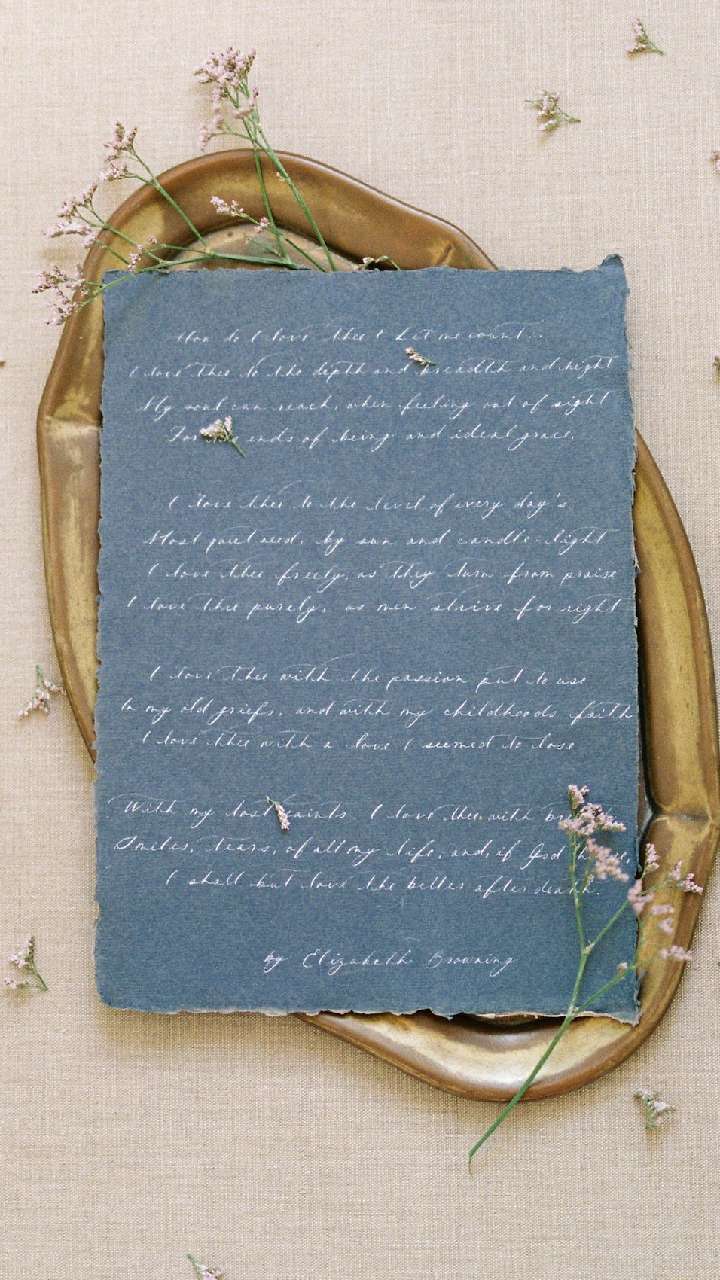 How do I love thee? Let me count...
I love thee to the depth and breadth and hight
My soul can reach, when feeling out of sight
For ends of being and ideal grace.
I love thee to the level of every day's
Most quiet need, by sun and candle-light
I love thee freely, as they turn from praise
I love thee purely, as men strive for right
I love thee with the passion put to use
In my old griefs, and with my childhoods faith
I love thee with a love I seemed to lose
With my lost saints I love thee with
Smiles, tears, of all my life, and, if God
I shall but love the better after death.
by Elizabeth Browning